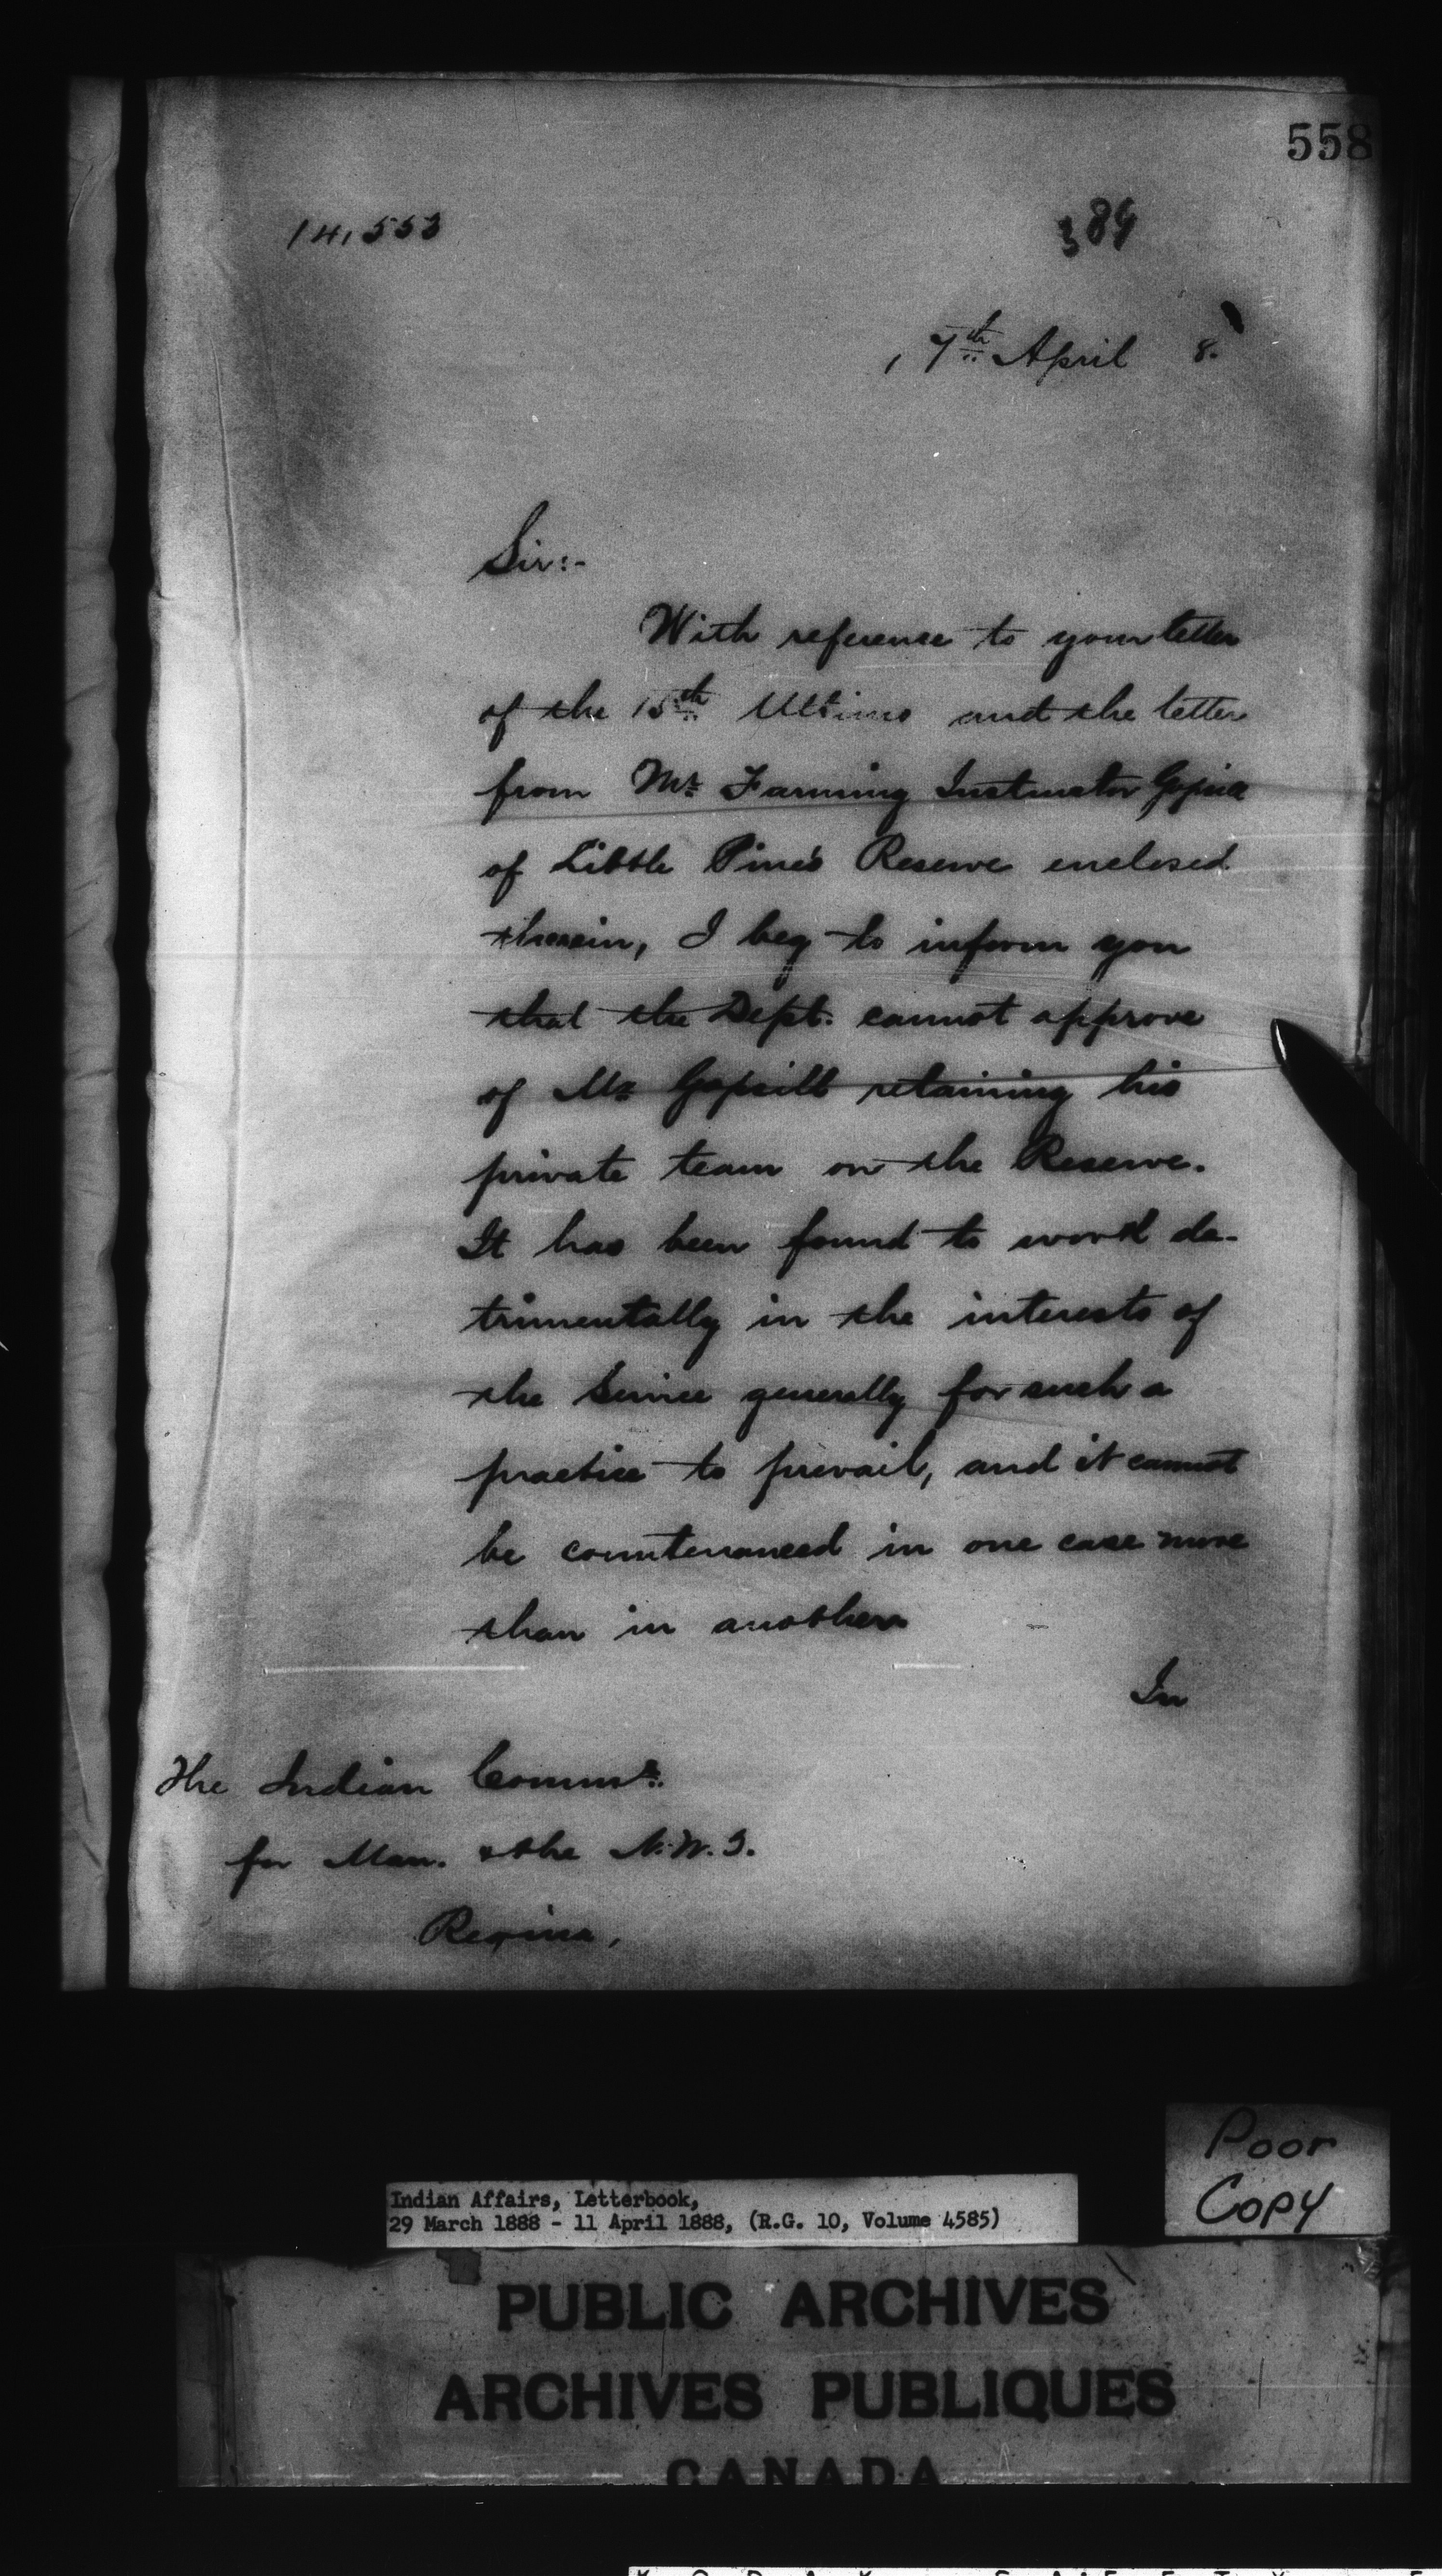 558
14,553
389
, 7th April 8.
Sir:-
With reference to your letter
of the 15th Ultimo and the letter
from Mr Farming Instructor Gopsill
of Little Pine's Reserve enclosed
therein, I beg to inform you
that the Dept. cannot approve
of Mr Gopsill retaining his
private team on the Reserve.
It has been found to work de-
trimentally in the interests of
the Service generally for such a
practice to prevail, and it cannot
be countenanced in one case more
than in another
In
The Indian Commr.
for Man. & the N.W.T.
Regina,
Poor
Copy
Indian Affairs, Letterbook,
29 March 1888 - 11 April 1888, (R.G. 10, Volume 4585)
PUBLIC ARCHIVES
ARCHIVES PUBLIQUES
CANADA